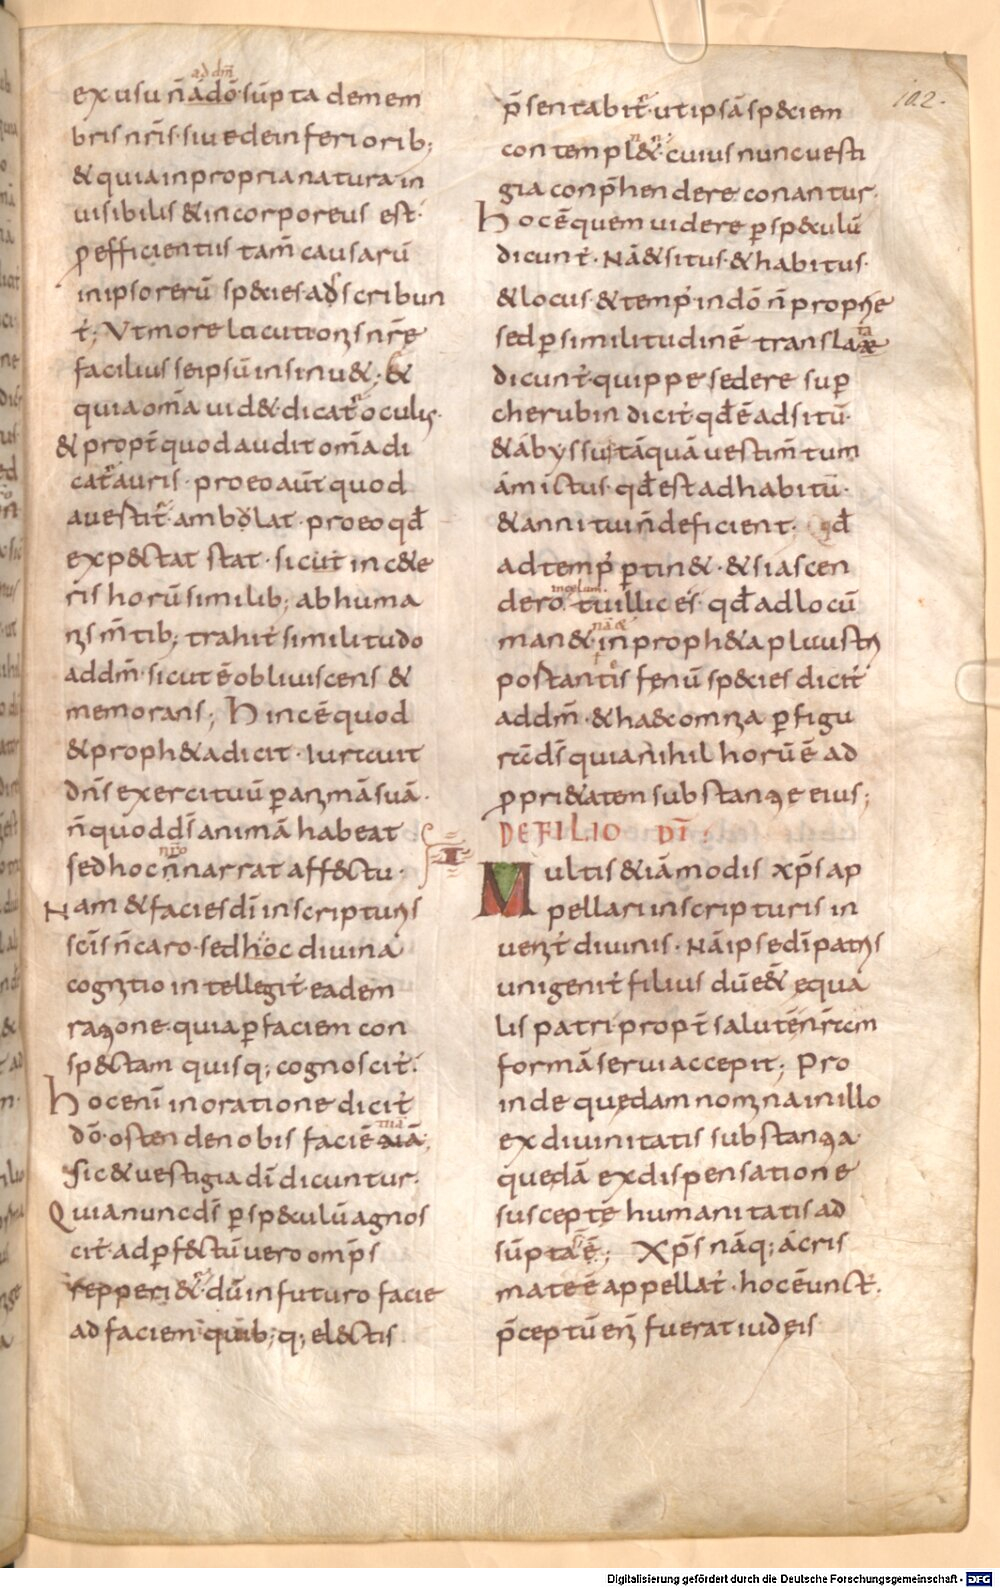 ad dm̄
ex usu n̄ ad dō sūpta de mem
bris nr̄is· siue de inferiorib;
& quia in propria natura in
uisibilis & incorporeus est·
p efficientiis tam̄ causarū
in ipso rerū sp&cies adscribun
t̄; Ut more locutionis nr̄ę
facilius se ipsū insinu&; &
quia om̄a uid& dicat̄ oculis·
& propt̄ quod audit om̄a di
cat̄ auris· pro eo aūt quod
auestit̄ ambolat· pro eo qđ
exp&ctat stat· sicut in c&e
ris horū similib; ab huma
nis m̄tib; trahit̄ similitudo
ad dm̄· sicut ē obliuiscens &
memorans; Hinc ē quod
& proph&a dicit· Iurauit
dn̄s exercituū p animā suā·
n̄ quod ds̄ animā habeat
nr̄o
sed hoc n̄ narrat aff&ctu·
Nam & facies dī in scripturis
sc̄is n̄ caro· sed hoc diuina
cognitio intellegit̄ eadem
ratione quia p faciem con
sp&ctam quisq; cognoscit̄·
Hoc enī in oratione dicit̄
tuā
dō· ostende nobis faciē suā;
Sic & uestigia dī dicuntur·
Quia nunc ds̄ p sp&culū agnos
cit̄· ad pf&ctū uero omp̄s
repperi&· dū in futuro facie
ad faciem quib; q; el&ctis
102·
p̄sentabit̄· ut ipsā sp&ciem
contempl&· cuius nunc uesti
gia conp̄hendere conantur·
Hoc ē quem uidere p sp&culū
dicunt̄· Nā & situs· & habitus·
& locus & temp̄ in dō n̄ proprie
sed p similitudinē translatę
ta
dicunt̄ quippe sedere sup
cherubin dicit̄ qđ ē ad sitū·
& abyssus tāquā uestim̄tum
amictus· qđ est ad habitū·
& anni tui n̄ deficient· qđ
ad temp̄ ptin&· & si ascen
in celum·
dero tu illic es· qđ ad locū
nā &
man& in proph&a plaustri
postantis fenū sp&cies dicit̄
ad dm̄· & haec omnia p figu
rā ds̄ quia nihil horū ē ad
pprietatem substantię eius;
DE FILIO DĪ·
I
Multis &iā modis xp̄s ap
pellari in scripturis in
uenit̄ diuinis· Nā ipse dī patris
unigenit̄ filius dū e&́ ęqua
lis patri propt̄ salutē nr̄am
formā serui accepit; Pro
inde quędam nomina in illo
ex diuinitatis substantia·
quędā ex dispensatione
susceptę humanitatis ad
sūpta ē; Xp̄s nāq; a cris
mate ē appellat̄· hoc ē unct̄·
p̄ceptū eni fuerat iudęis